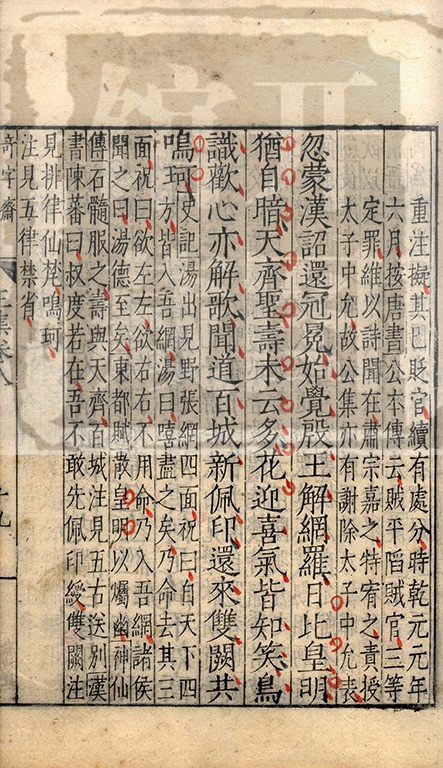 重注擬其已貶官續有處分時乾元元年
六月按唐書公本傳云賊平䧟賊官三等
定罪維以詩聞在肅宗嘉之特宥之責授
太子中允故公集亦有謝除太子中允表
忽蒙漢詔還冠冕始覺殷王解網羅日比皇明
猶自暗天齊聖壽未云多花迎喜氣皆知笑鳥
識歡心亦解歌聞道百城新佩印還來雙闕共
鳴珂
史記湯出見野張網四面祝曰自天下四
方皆入吾網湯曰嘻盡之矣乃命去其三
面祝曰欲左左欲右右不用命乃入吾網諸侯
聞之曰湯德至矣東都賦散皇明以燭幽神仙
傳石髓服之壽與天齊百城注見五古送別漢
書陳蕃曰叔度若在吾不敢先佩印綬雙闕注
見排律仙梵鳴珂
注見五律禁省